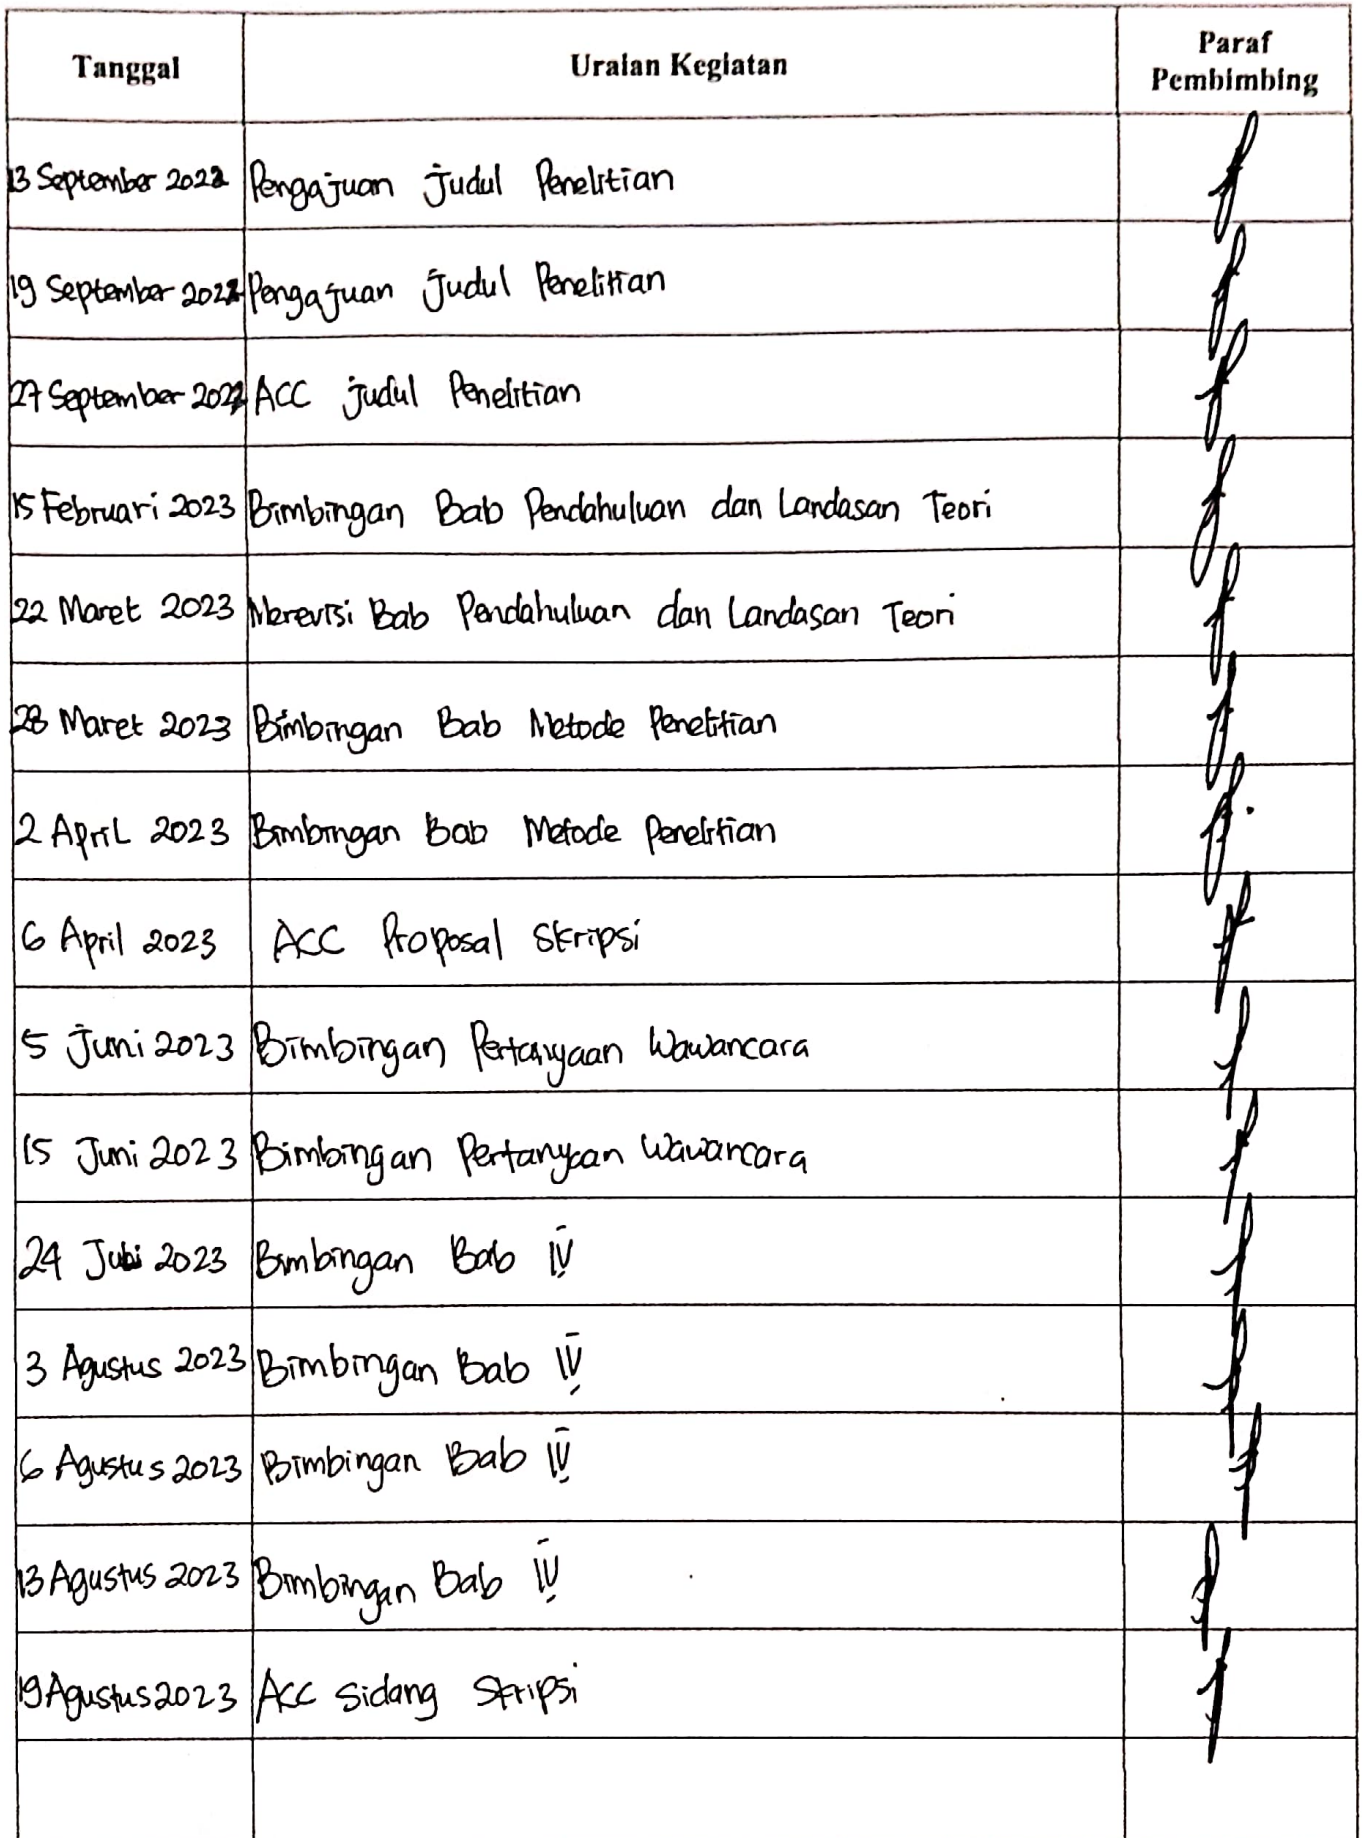 Tanggal Uraian Kegiatan Paraf Pembimbing
13 September 2022 Pengajuan Judul Penelitian
19 September 2022 Pengajuan Judul Penelitian
27 September 2022 ACC Judul Penelitian
15 Februari 2023 Bimbingan Bab Pendahuluan dan Landasan Teori
22 Maret 2023 Merevisi Bab Pendahuluan dan Landasan Teori
28 Maret 2023 Bimbingan Bab Metode Penelitian
2 April 2023 Bimbingan Bab Metode Penelitian
6 April 2023 ACC Proposal Skripsi
5 Juni 2023 Bimbingan Pertanyaan Wawancara
15 Juni 2023 Bimbingan Pertanyaan Wawancara
24 Juli 2023 Bimbingan Bab IV
3 Agustus 2023 Bimbingan Bab IV
6 Agustus 2023 Bimbingan Bab IV
13 Agustus 2023 Bimbingan Bab IV
19 Agustus 2023 ACC Sidang Skripsi